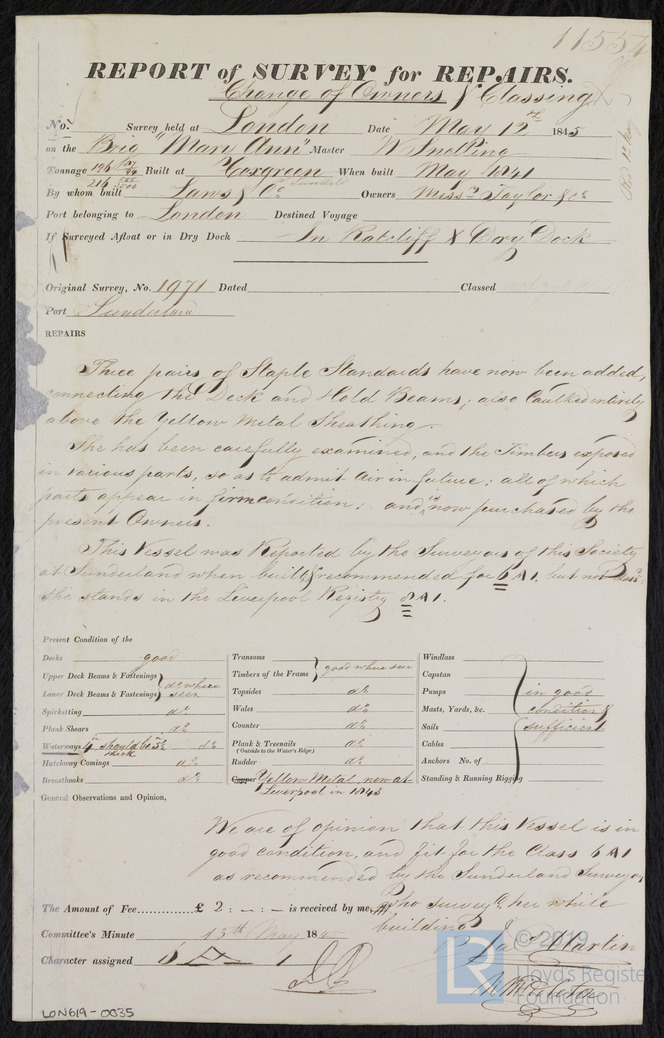 11554
REPORT of SURVEY for REPAIRS.
Change of Owners & Classing
No. Survey held at London Date May 12th 1845
on the Brig "Mary Ann" Master W Snelling
Tonnage 196 Built at Coxgreen When built May 1841
216
By whom built Laws & Co Owners Messrs Taylor & Co
Port belonging to London Destined Voyage
If Surveyed Afloat or in Dry Dock In Ratcliff X Dry Dock
Original Survey, No. 1971 Dated Classed
Port Sunderland
REPAIRS
Three pairs of Staple Standards have now been added,
connecting the Deck and Hold Beams; also Caulked entirely
above the Yellow Metal Sheathing.
She has been carefully examined, and the Timbers exposed
in various parts, so as to admit air in future: all of which
parts appear in firm condition; and now purchased by the
present Owners.
This Vessel was Reported by the Surveyors of this Society
at Sunderland when built, & recommended for 6 A1, but not
She stands in the Liverpool Registry 8 A1.
Present Condition of the
Decks good
Upper Deck Beams & Fastenings
Lower Deck Beams & Fastenings do where seen
Spirketting do
Plank Shears do
Waterways 4in should be 3½ thick do
Hatchway Comings do
Breasthooks do
Transoms
Timbers of the Frame good where seen
Topsides do
Wales do
Counter do
Plank & Treenails do
(Outside to the Water's Edge)
Rudder do
Copper Yellow Metal, new at
Liverpool in 1843
Windlass
Capstan
Pumps in good
Masts, Yards, &c. condition &
Sails sufficient
Cables
Anchors No. of
Standing & Running Rigging
General Observations and Opinion,
We are of opinion that this Vessel is in
good condition, and fit for the Class 6 A1
as recommended by the Sunderland Surveyor
who surveyed her while
building
The Amount of Fee.............. £ 2 : — : — is received by me,
Committee's Minute 13th May 1845
Character assigned 6 A 1
Jas Martin
LON619-0035
© 2019
Lloyd's Register
Foundation
LR